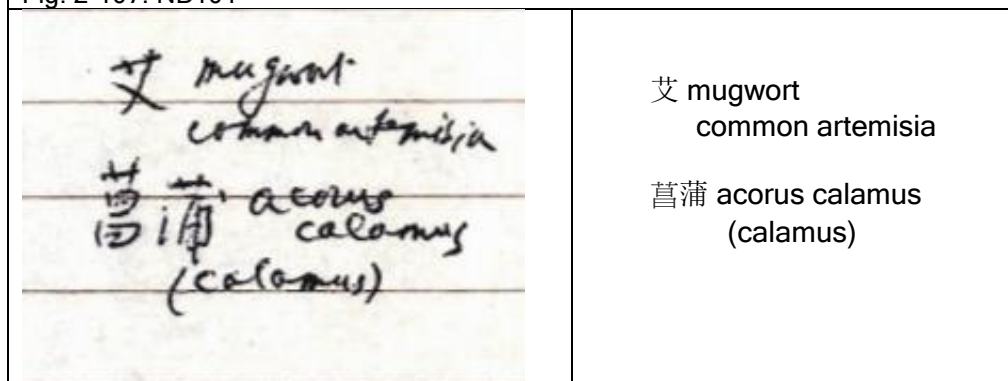 艾 mugwort
common artemisia
菖蒲 acorus
calamus
(calamus)
艾 mugwort
common artemisia
菖蒲 acorus calamus
(calamus)